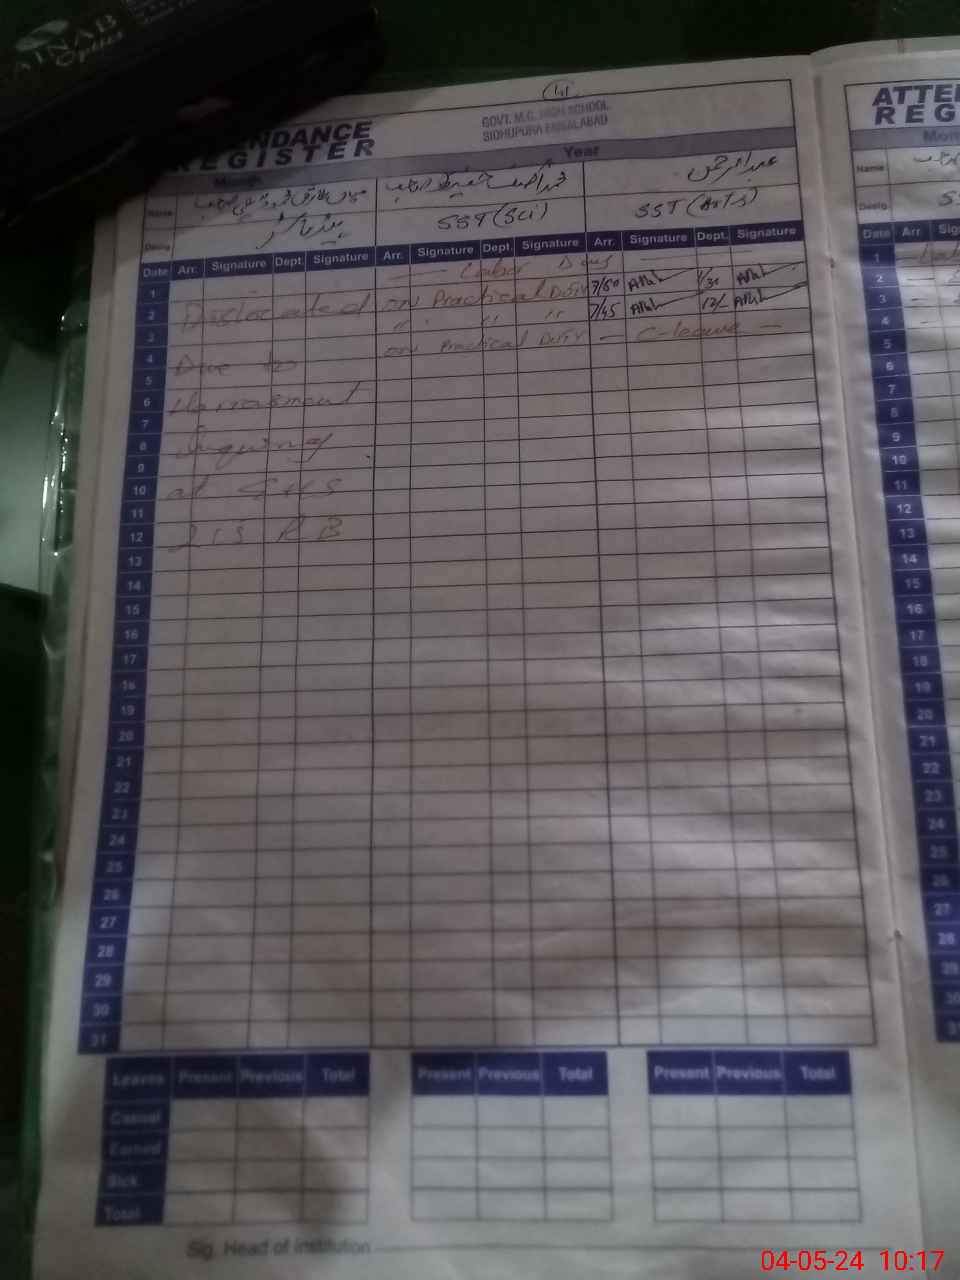 Optics
GOVT. M.C. HIGH SCHOOL
SIDHUPURA FAISALABAD
NDANCE
REGISTER
Month
Year
Name
عبدالرحمن
Desig.
ہیڈ ماسٹر
SST (Sci)
SST (Arts)
Date Arr. Signature Dept. Signature Arr. Signature Dept. Signature Arr. Signature Dept. Signature
1 — Labor Day —
2 Dislocated on Practical Duty 7/50 1/30
3 " " " 7/45 12/-
4 Due to on Practical Duty — C-leave —
5
6 Harrasment
7
8 Inquiry
9
10 at GHS
11
12 215 RB
13
14
15
16
17
18
19
20
21
22
23
24
25
26
27
28
29
30
31
Leaves Present Previous Total
Casual
Earned
Sick
Total
Present Previous Total
Present Previous Total
Sig. Head of Institution
ATTE
REG
Mon
Name
Desig.
Date Arr. Sig
1
2
3
4
5
6
7
8
9
10
11
12
13
14
15
16
17
18
19
20
21
22
23
24
25
26
27
28
29
30
31
04-05-24 10:17